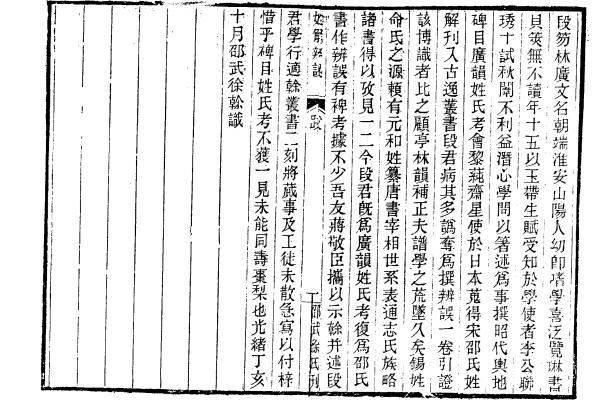 段笏林廣文名朝端淮安山陽人幼卽嗜學喜泛覽琳書
貝筴無不讀年十五以玉帶生賦受知於學使者李公聯
琇十試秋闈不利益潛心學問以箸述爲事撰昭代輿地
碑目廣韻姓氏考會黎蒓齋星使於日本蒐得宋邵氏姓
解刊入古逸叢書段君病其多譌奪爲撰辨誤一卷引證
該博識者比之顧亭林韻補正夫譜學之荒墜久矣錫姓
命氏之源賴有元和姓纂唐書宰相世系表通志氏族略
諸書得以攷見一二今段君旣爲廣韻姓氏考復爲邵氏
書作辨誤有裨考據不少吾友蔣敬臣攜以示榦并述段
姓解辨誤
邵武徐氏刋
君學行適榦叢書二刻將蕆事及工徒未散急寫以付梓
惜乎碑目姓氏考不獲一見未能同壽棗梨也光緒丁亥
十月邵武徐榦識